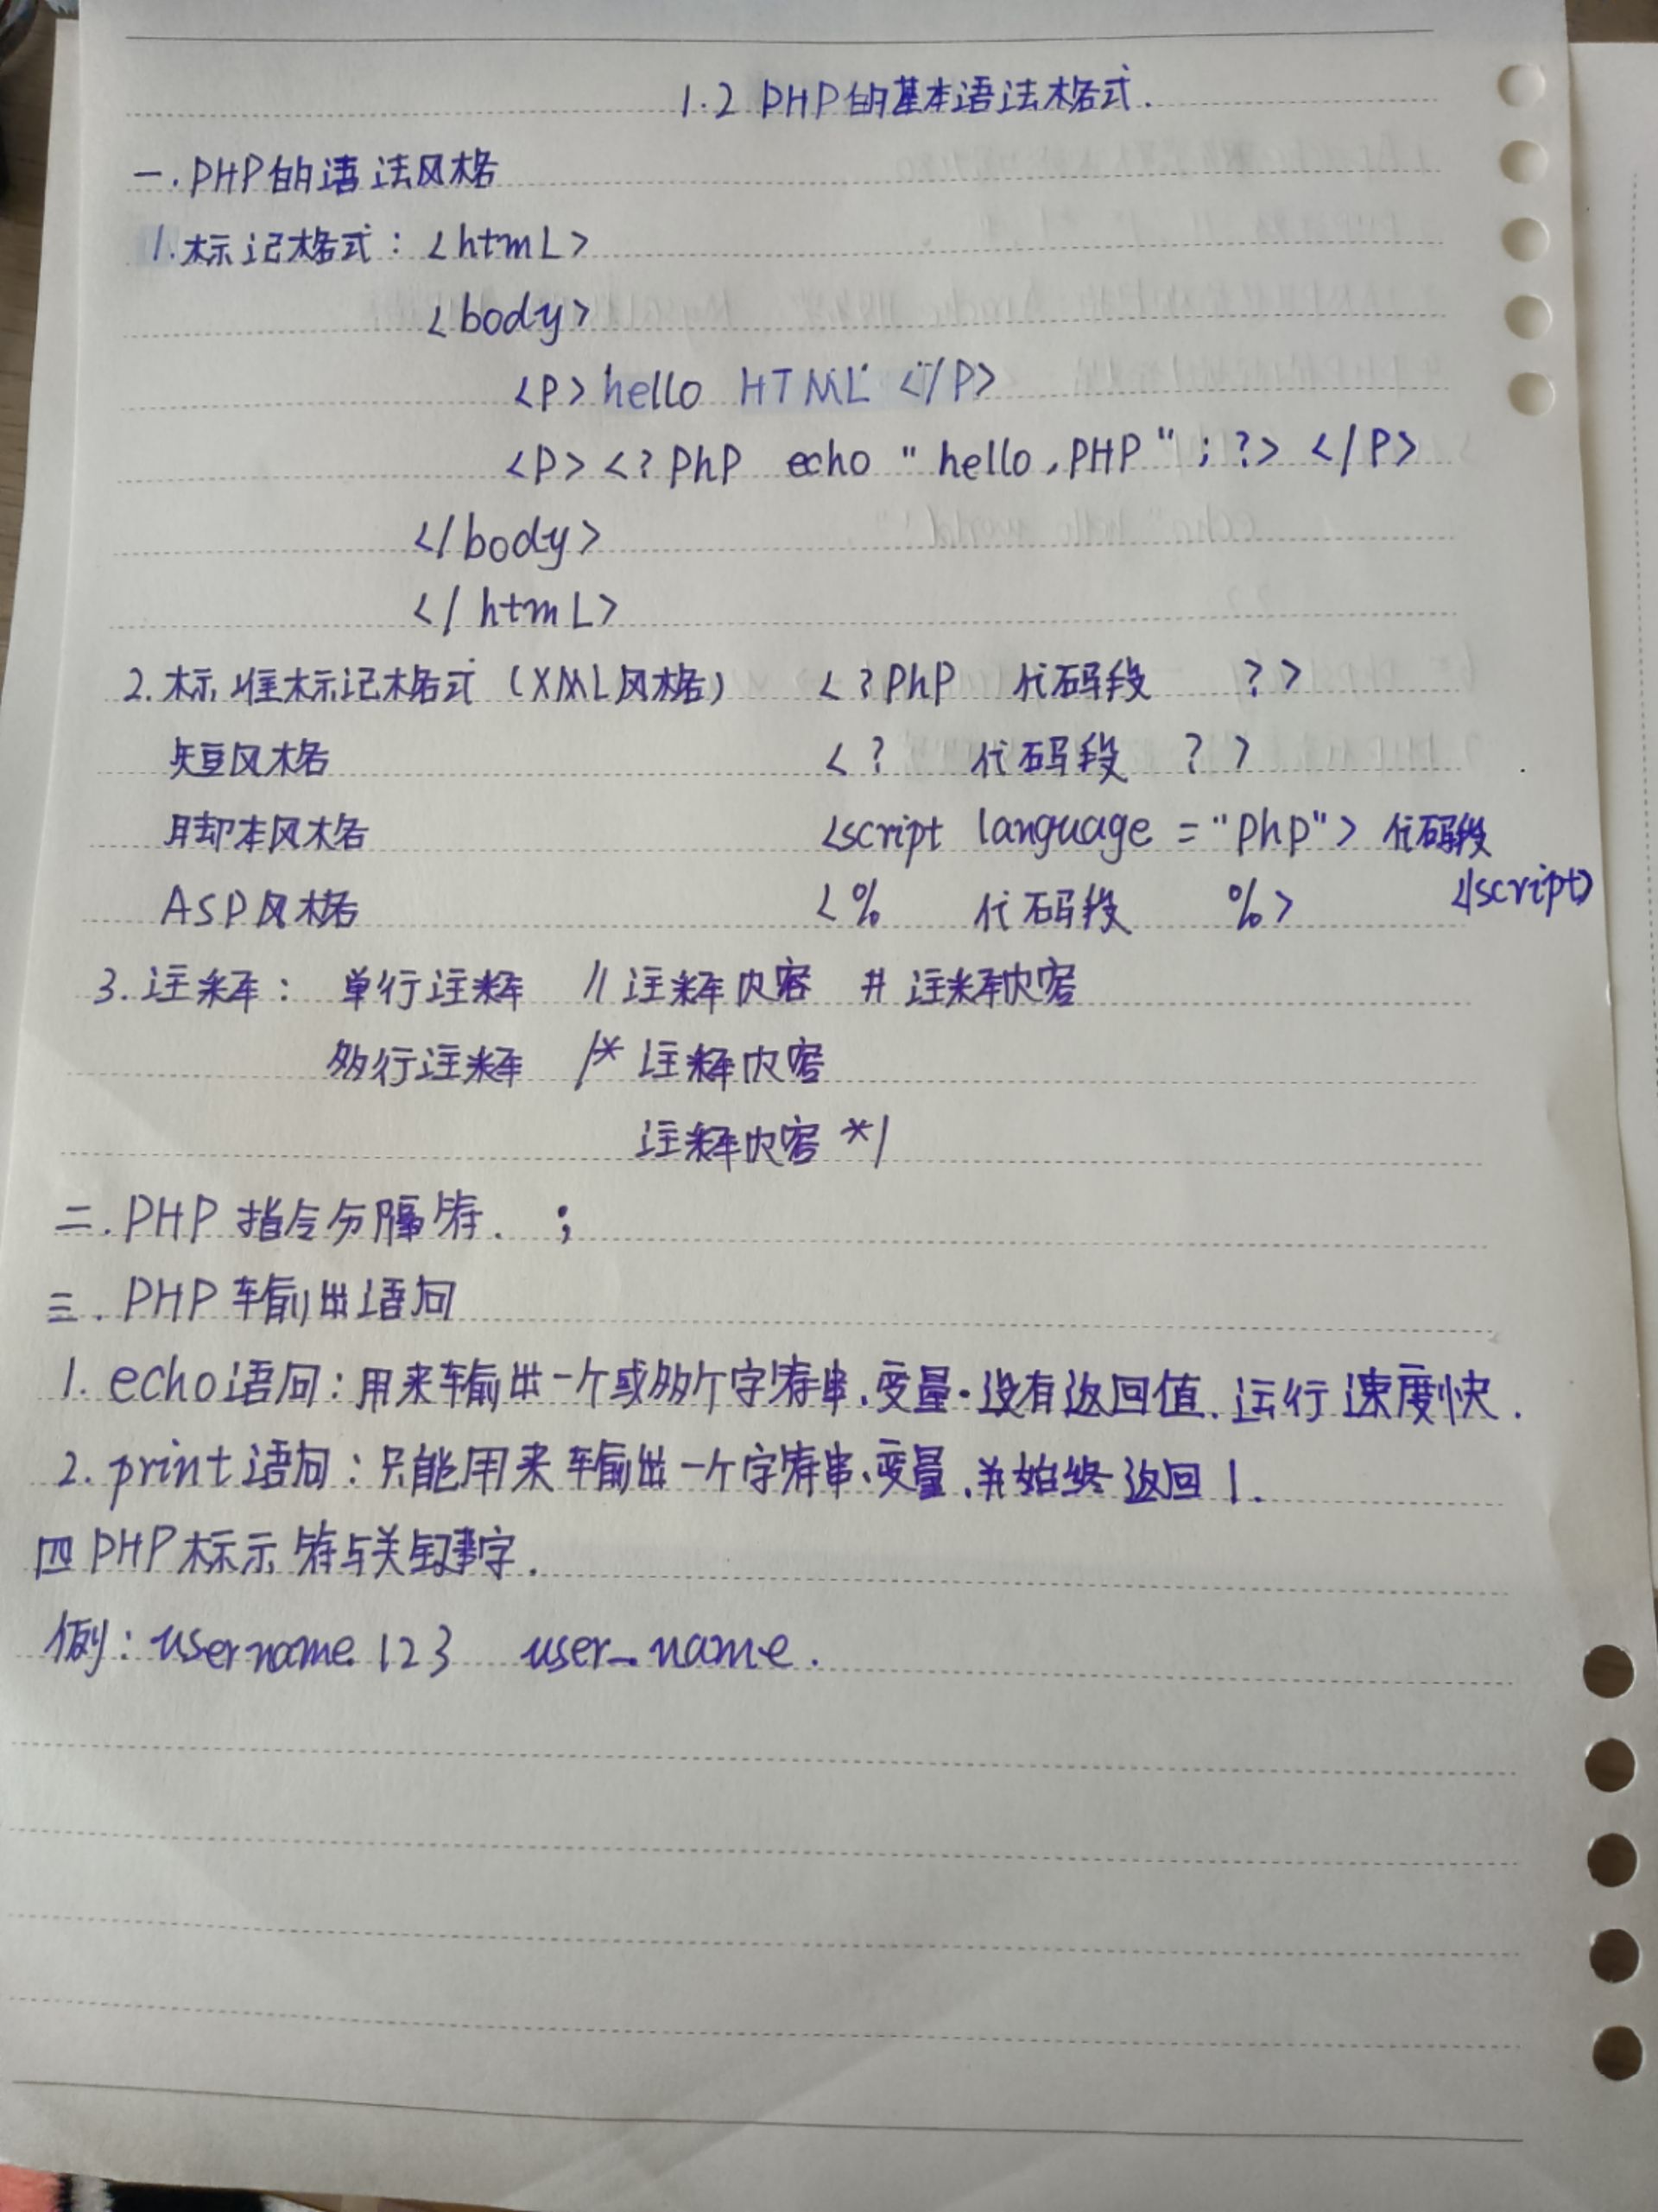 1.2 PHP的基本语法格式.
一.PHP的语法风格
1.标记格式: <htmL>
<body>
<P>hello HTML </P>
<P><?PhP echo "hello,PHP";?></P>
</body>
</htmL>
2.标准标记格式(XML风格) <?PhP 代码段 ?>
短风格 <? 代码段 ?>
脚本风格 <script language="php"> 代码段
</script>
ASP风格 <% 代码段 %>
3.注释: 单行注释 //注释内容 # 注释内容
多行注释 /* 注释内容
注释内容 */
二.PHP 指令分隔符. ;
三.PHP 输出语句
1.echo语句:用来输出一个或多个字符串、变量.没有返回值.运行速度快.
2.print语句:只能用来输出一个字符串、变量,并始终返回1.
四PHP标示符与关键字.
例:username123 user_name.